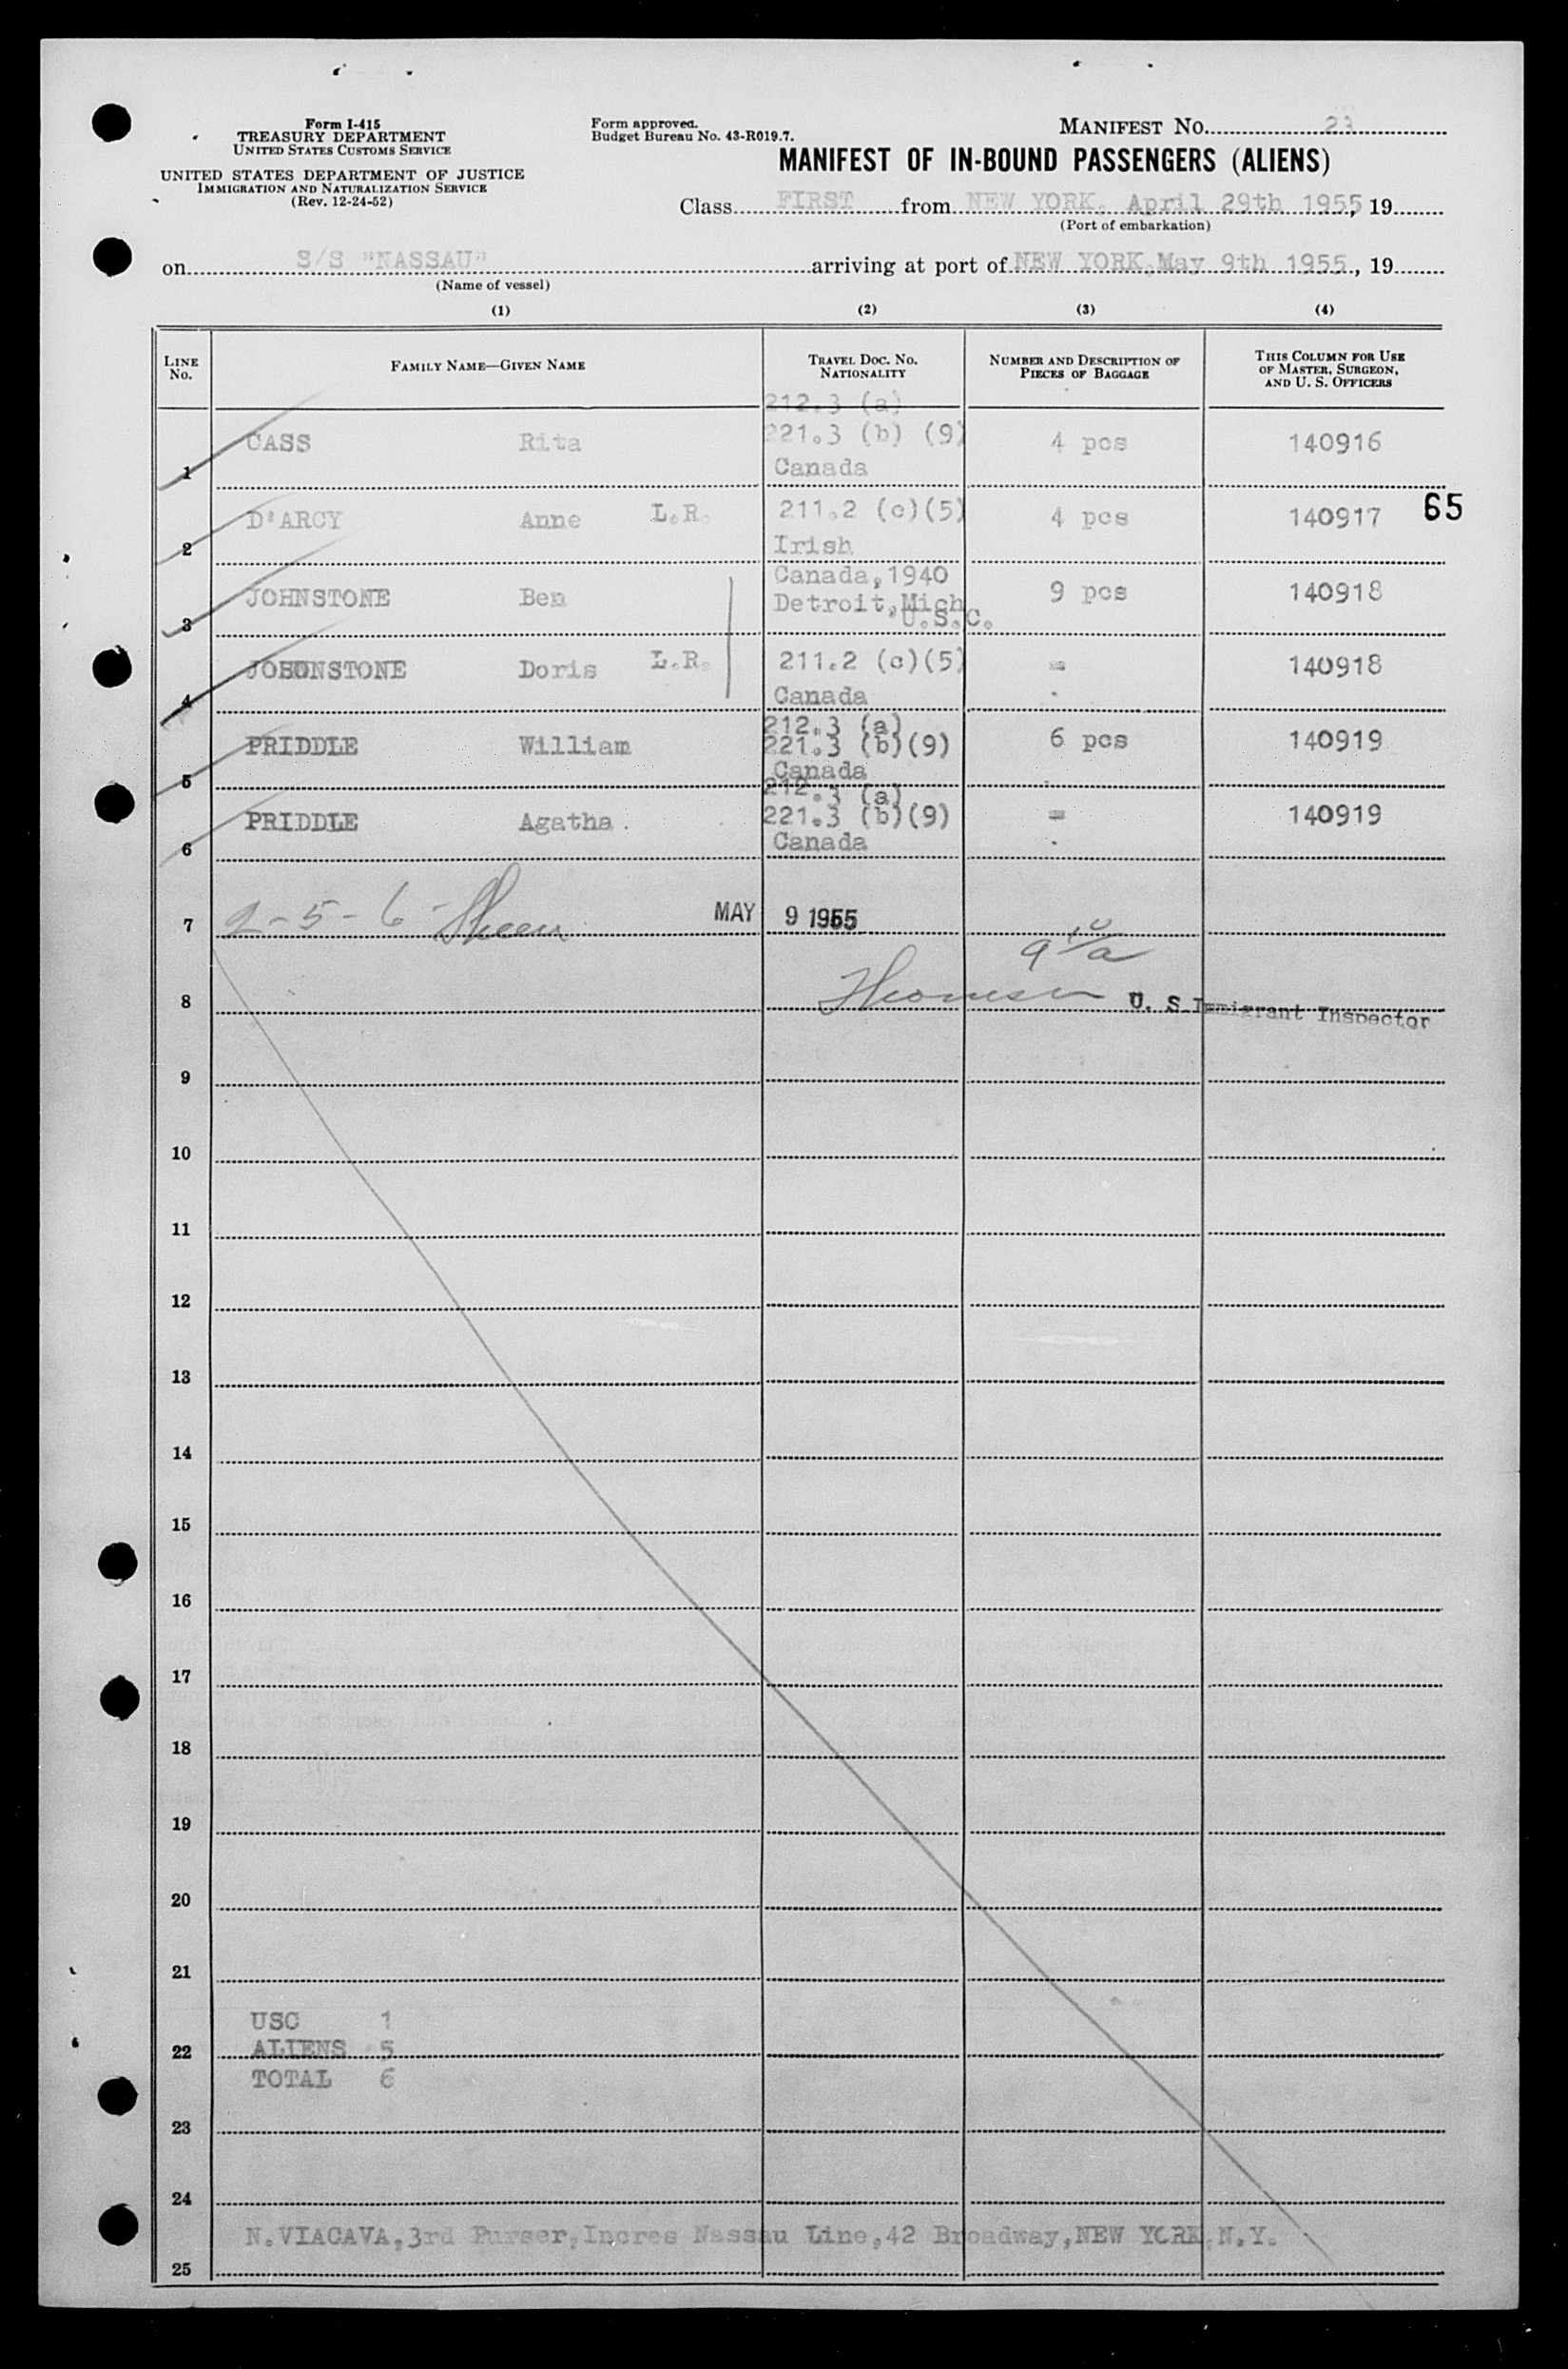 Form I-415
TREASURY DEPARTMENT
UNITED STATES CUSTOMS SERVICE
UNITED STATES DEPARTMENT OF JUSTICE
IMMIGRATION AND NATURALIZATION SERVICE
(Rev. 12-24-52)
Form approved.
Budget Bureau No. 43-R019.7.
MANIFEST NO. 23
MANIFEST OF IN-BOUND PASSENGERS (ALIENS)
Class FIRST from NEW YORK, April 29th 1955, 19
(Port of embarkation)
on S/S "NASSAU" arriving at port of NEW YORK, May 9th 1955, 19
(Name of vessel)
(1) (2) (3) (4)
LINE NO. FAMILY NAME—GIVEN NAME TRAVEL DOC. NO. NATIONALITY NUMBER AND DESCRIPTION OF PIECES OF BAGGAGE THIS COLUMN FOR USE OF MASTER, SURGEON, AND U. S. OFFICERS
212.3 (a)
1 CASS Rita 221.3 (b) (9) 4 pcs 140916
Canada
2 D'ARCY Anne L.R. 211.2 (c)(5) 4 pcs 140917 65
Irish
Canada,1940
3 JOHNSTONE Ben Detroit,Mich 9 pcs 140918
U.S.C.
4 JOHNSTONE Doris L.R. 211.2 (c)(5) = 140918
Canada
212.3 (a)
5 PRIDDLE William 221.3 (b)(9) 6 pcs 140919
Canada
212.3 (a)
6 PRIDDLE Agatha 221.3 (b)(9) = 140919
Canada
7 2-5-6- Sheen MAY 9 1955
8 U. S. Immigrant Inspector
9
10
11
12
13
14
15
16
17
18
19
20
21
USC 1
22 ALIENS 5
TOTAL 6
23
24
N.VIACAVA,3rd Purser,Incres Nassau Line,42 Broadway,NEW YORK,N.Y.
25